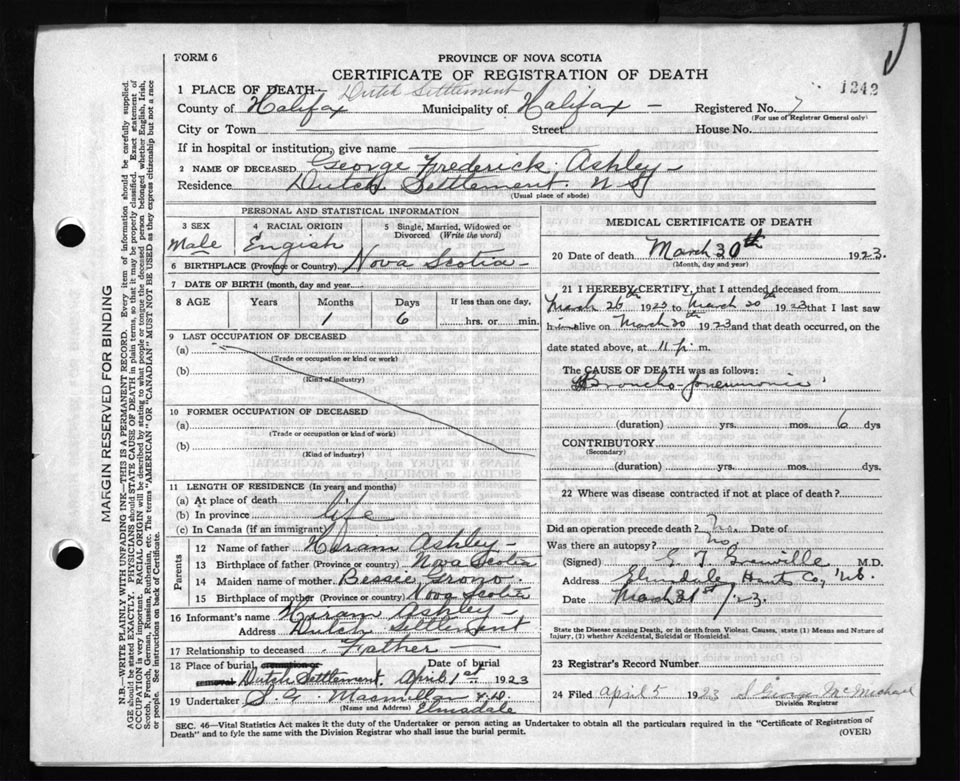 FORM 6
PROVINCE OF NOVA SCOTIA
CERTIFICATE OF REGISTRATION OF DEATH
1242
1 PLACE OF DEATH- Dutch Settlement
County of Halifax Municipality of Halifax - Registered No. 7
(For use of Registrar General only)
City or Town Street House No.
If in hospital or institution, give name
2 NAME OF DECEASED George Frederick Ashley -
Residence Dutch Settlement. N S
(Usual place of abode)
PERSONAL AND STATISTICAL INFORMATION
3 SEX Male
4 RACIAL ORIGIN Engish
5 Single, Married, Widowed or Divorced (Write the word)
6 BIRTHPLACE (Province or Country) Nova Scotia -
7 DATE OF BIRTH (month, day and year)
8 AGE Years Months Days If less than one day,
1 6 hrs. or min.
9 LAST OCCUPATION OF DECEASED
(a)
(Trade or occupation or kind or work)
(b)
(Kind of industry)
10 FORMER OCCUPATION OF DECEASED
(a)
(Trade or occupation or kind of work)
(b)
(Kind of industry)
11 LENGTH OF RESIDENCE (In years and months)
(a) At place of death
(b) In province life
(c) In Canada (if an immigrant)
Parents
12 Name of father Hiram Ashley -
13 Birthplace of father (Province or country) Nova Scotia
14 Maiden name of mother Bessee Grono.
15 Birthplace of mother (Province or country) Nova Scotia
16 Informant's name Hiram Ashley -
Address Dutch Settlement
17 Relationship to deceased Father -
18 Place of burial Date of burial
removal Dutch Settlement. April 1st 1923
19 Undertaker S. G. Macmillan
(Name and Address) Elmsdale
MEDICAL CERTIFICATE OF DEATH
20 Date of death March 30th 1923.
(Month, day and year)
21 I HEREBY CERTIFY, that I attended deceased from
March 26th 1923 to March 30th 1923 that I last saw
h alive on March 30th 1923 and that death occurred, on the
date stated above, at 11 p. m.
The CAUSE OF DEATH was as follows:
Broncho-pneumonia
(duration) yrs. mos. 6 dys
CONTRIBUTORY
(Secondary)
(duration) yrs. mos. dys.
22 Where was disease contracted if not at place of death?
Did an operation precede death? No. Date of
Was there an autopsy? No.
(Signed) M.D.
Address Elmsdale, Hants Co, N.S.
Date March 31st /23.
State the Disease causing Death, or in death from Violent Causes, state (1) Means and Nature of
Injury, (2) whether Accidental, Suicidal or Homicidal.
23 Registrar's Record Number
24 Filed April 5 1923 George McMichael
Division Registrar
SEC. 46—Vital Statistics Act makes it the duty of the Undertaker or person acting as Undertaker to obtain all the particulars required in the "Certificate of Registration of
Death" and to fyle the same with the Division Registrar who shall issue the burial permit.
(OVER)
MARGIN RESERVED FOR BINDING
N.B.—WRITE PLAINLY WITH UNFADING INK—THIS IS A PERMANENT RECORD. Every item of information should be carefully supplied.
AGE should be stated EXACTLY. PHYSICIANS should STATE CAUSE OF DEATH in plain terms, so that it may be properly classified. Exact statement of
OCCUPATION is very important. RACIAL ORIGIN will be described by stating to what people or tongue the deceased person belonged whether English, Irish,
Scotch, French, German, Russian, Ruthenian, etc. The terms "AMERICAN" OR "CANADIAN" MUST NOT BE USED as they express citizenship but not a race
or people. See instructions on back of Certificate.